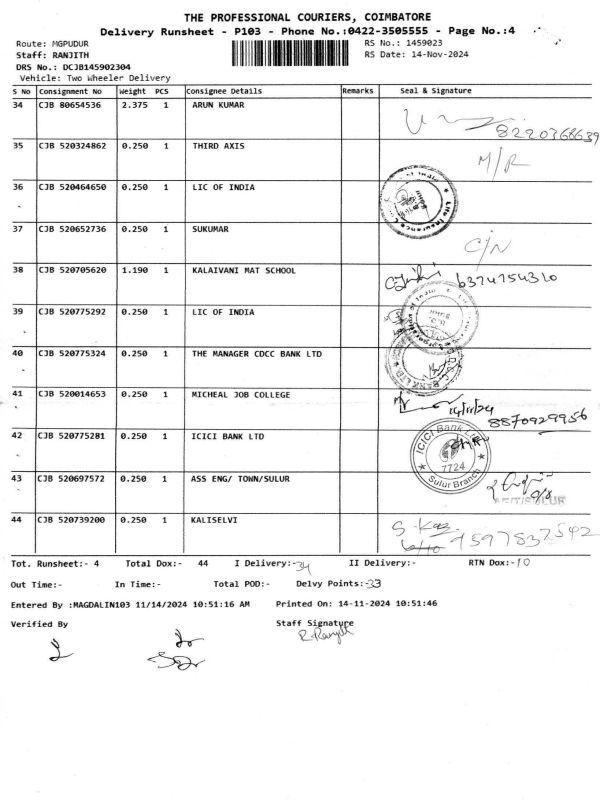 THE PROFESSIONAL COURIERS, COIMBATORE
Delivery Runsheet - P103 - Phone No.:0422-3505555 - Page No.:4
Route: MGPUDUR RS No.: 1459023
Staff: RANJITH RS Date: 14-Nov-2024
DRS No.: DCJB145902304
Vehicle: Two Wheeler Delivery
S No Consignment No Weight PCS Consignee Details Remarks Seal & Signature
34 CJB 80654536 2.375 1 ARUN KUMAR
8220368639
35 CJB 520324862 0.250 1 THIRD AXIS M/R
36 CJB 520464650 0.250 1 LIC OF INDIA
37 CJB 520652736 0.250 1 SUKUMAR C/N
38 CJB 520705620 1.190 1 KALAIVANI MAT SCHOOL 6374754310
39 CJB 520775292 0.250 1 LIC OF INDIA
40 CJB 520775324 0.250 1 THE MANAGER CDCC BANK LTD
BANK LTD
41 CJB 520014653 0.250 1 MICHEAL JOB COLLEGE 14/11/24
8870929956
42 CJB 520775281 0.250 1 ICICI BANK LTD
ICICI Bank
7724
Sulur Branch
43 CJB 520697572 0.250 1 ASS ENG/ TOWN/SULUR
44 CJB 520739200 0.250 1 KALISELVI
9597837542
Tot. Runsheet:- 4 Total Dox:- 44 I Delivery:-34 II Delivery:- RTN Dox:-10
Out Time:- In Time:- Total POD:- Delvy Points:-33
Entered By :MAGDALIN103 11/14/2024 10:51:16 AM Printed On: 14-11-2024 10:51:46
Verified By Staff Signature
R. Ranjith